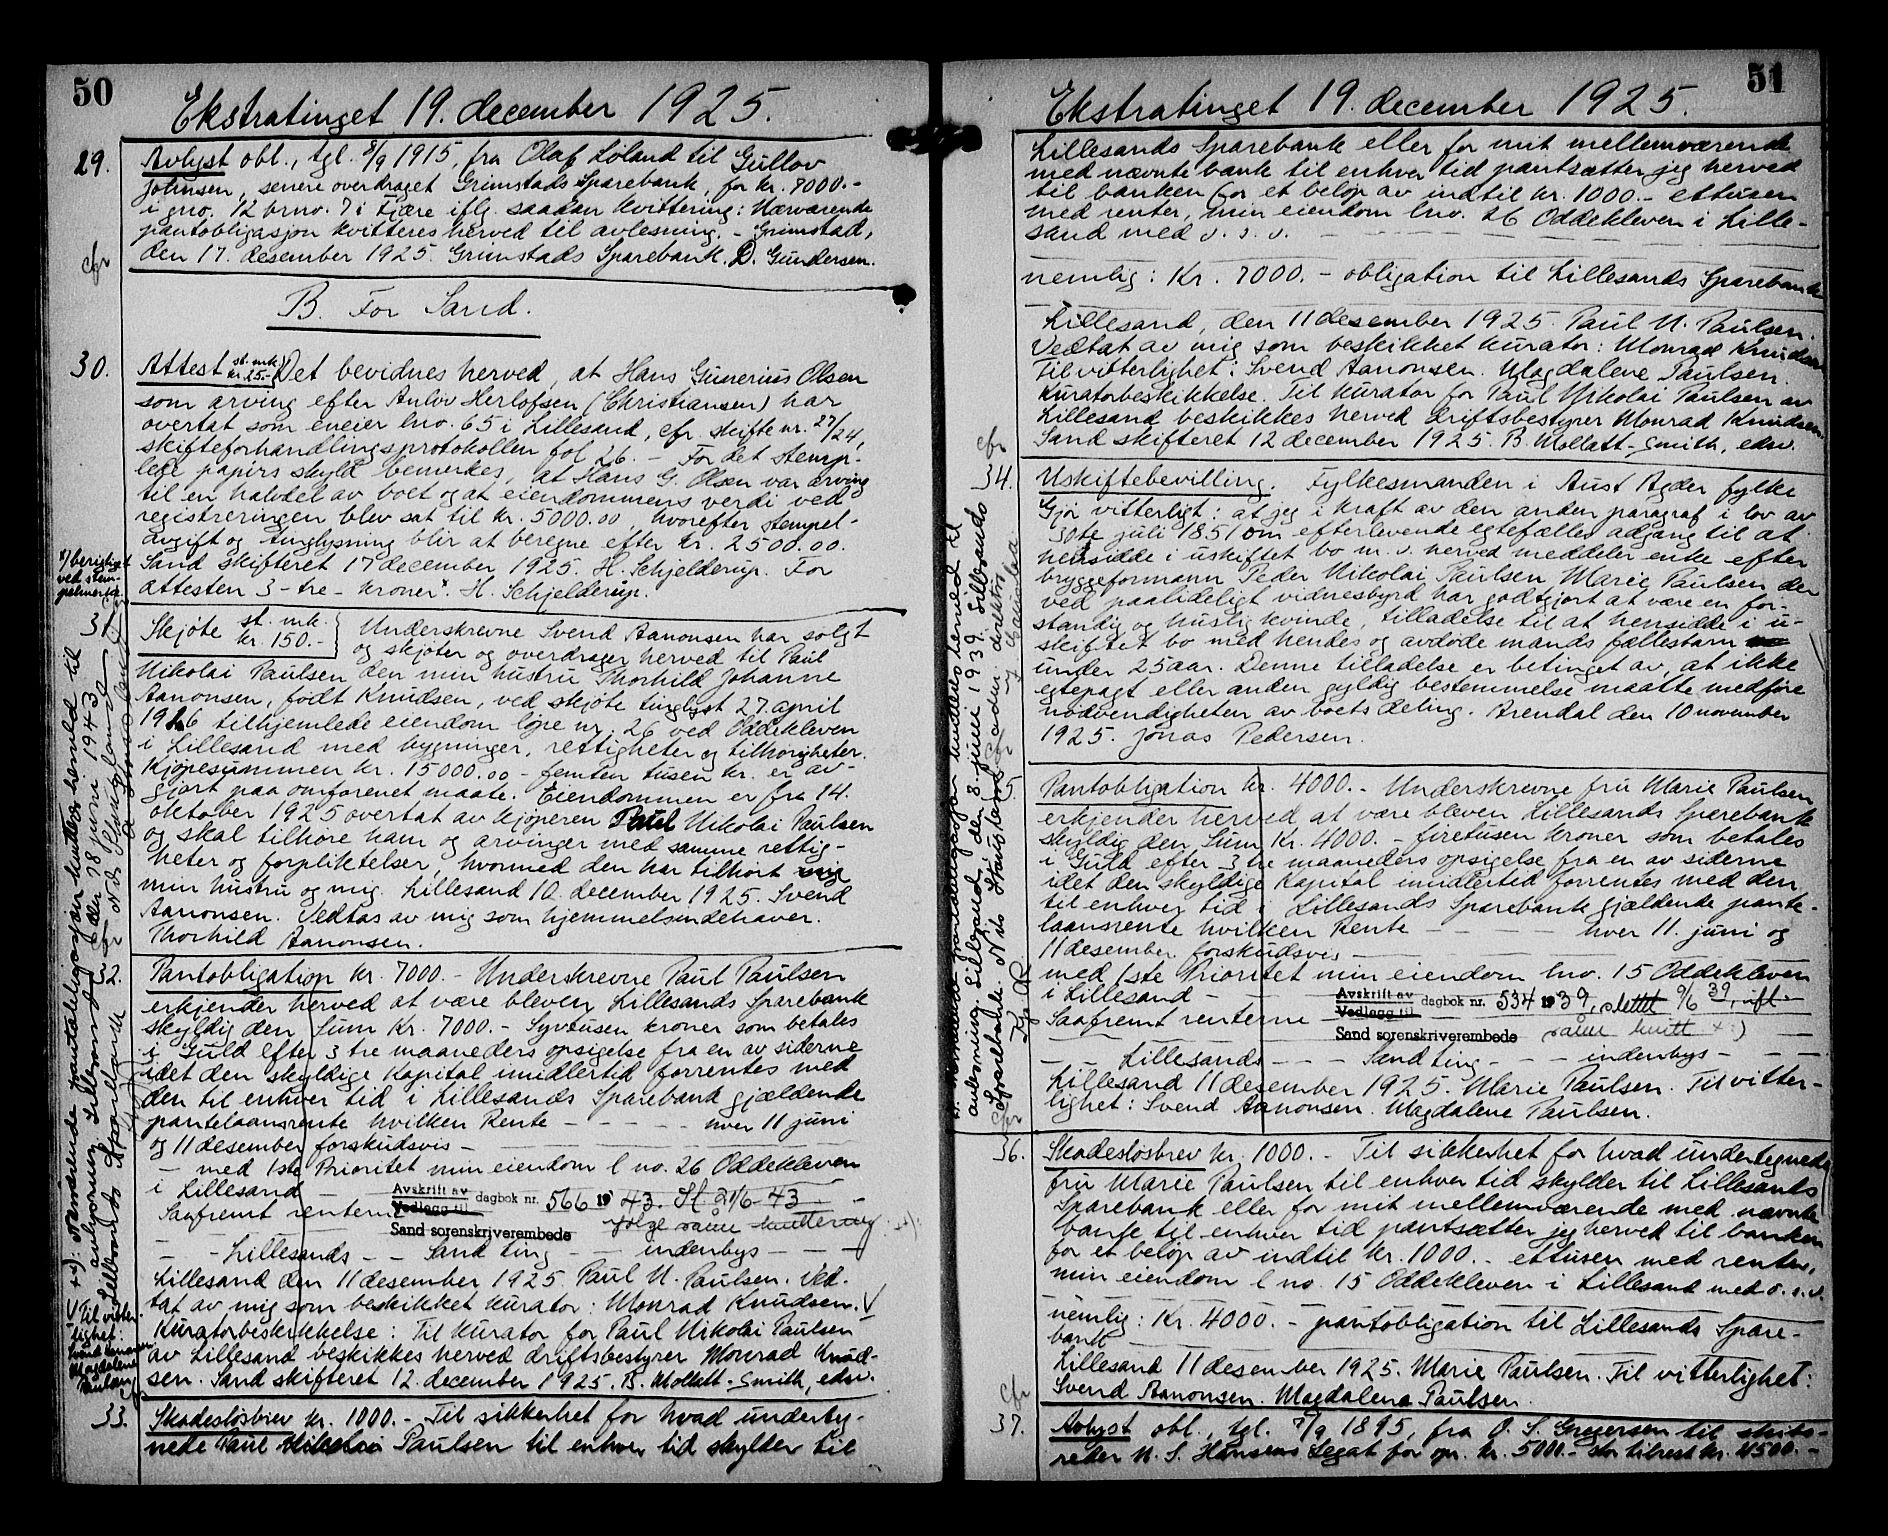 50
Ekstratinget 19. december 1925.
29.
Avlyst obl., tgl. 8/9 1915, fra Olaf Løland til Gullov
Johnsen, senere overdraget Grimstads Sparebank, for kr. 7000.-
i gno. 12 brno. 7 i Fjære iflg. saadan kvittering: Nærværende
pantobligasjon kvitteres herved til avlesning. - Grimstad,
den 17. desember 1925. Grimstads Sparebank. D. Gundersen.
cfr
B. For Sand.
30.
Attest st. mk. kr. 25.- Det bevidnes herved, at Hans Gunerius Olsen
som arving efter Anlov Herlofsen (Christiansen) har
overtat som eneier lno. 65 i Lillesand, cfr. skifte nr. 27/24,
skifteforhandlingsprotokollen fol 26. - For det stemp-
lede papirs skyld bemerkes, at Hans G. Olsen var arving
til en halvdel av boet og at eiendommens verdi ved
registreringen blev sat til kr. 5000.00, hvorefter stempel-
avgift og tinglysning blir at beregne efter kr. 2500.00.
Sand skifteret 17 december 1925. H. Schjelderup. For
attesten 3 - tre - kroner x. H. Schjelderup.
x) beriktiget
ved stem-
pelmerker
31.
Skjøte st. mk. kr. 150.- Underskrevne Svend Aanonsen har solgt
og skjøter og overdrager herved til Paul
Nikolai Paulsen den min hustru Thorhild Johanne
Aanonsen, født Knudsen, ved skjøte tinglyst 27. april
1916 tilhjemlede eiendom løpe nr. 26 ved Oddekleven
i Lillesand med bygninger, rettigheter og tilhørigheter.
Kjøpesummen kr. 15000.00 - femten tusen kr. er av-
gjort paa omforenet maate. Eiendommen er fra 14.
oktober 1925 overtat av kjøperen Paul Nikolai Paulsen
og skal tilhøre ham og arvinger med samme rettig-
heter og forpliktelser, hvormed den har tilhørt
min hustru og mig. Lillesand 10. december 1925. Svend
Aanonsen. Vedtas av mig som hjemmelsindehaver.
Thorhild Aanonsen.
32.
Pantobligation kr. 7000.- Underskrevne Paul Paulsen
erkjender herved at være bleven Lillesands Sparebank
skyldig den Sum Kr. 7000.- Syvtusen kroner som betales
i Guld efter 3 tre maaneders opsigelse fra en av siderne
idet den skyldige Kapital imidlertid forrentes med
den til enhver tid i Lillesands Sparebank gjældende
pantelaansrente hvilken Rente - - - - - hver 11 juni
og 11 desember forskudsvis -
- med 1ste Prioritet min eiendom l no. 26 Oddekleven
i Lillesand -
Avskrift av
Vedlegg til dagbok nr. 566 19 43. Sl 21/6 43
Saafremt renterne
Sand sorenskriverembede
ifølge saadan kvittering x):
- - Lillesands - - Sand ting - - indenbys - - -
Lillesand den 11 desember 1925. Paul N. Paulsen. Ved-
tat av mig som beskikket kurator: Monrad Knudsen. V
Kuratorbeskikkelse: Til kurator for Paul Nikolai Paulsen
av Lillesand beskikkes herved driftsbestyrer Monrad Knud-
sen. Sand skifteret 12. december 1925. B. Mollatt-Smith, edsv.
V Til vitter-
lighet:
Svend Aanonsen
Magdalene
Paulsen
33.
Skadesløsbrev kr. 1000.- Til sikkerhet for hvad underteg-
nede Paul Nikolai Paulsen til enhver tid skylder til
51
Ekstratinget 19. december 1925.
Lillesands Sparebank eller for mit mellemværende
med nævnte bank til enhver tid pantsætter jeg herved
til banken for et beløp av indtil kr. 1000.- ettusen
med renter, min eiendom lno. 26 Oddekleven i Lille-
sand med o. s. v.
nemlig: Kr. 7000.- obligation til Lillesands Sparebank
Lillesand, den 11 desember 1925. Paul N. Paulsen.
Vedtat av mig som beskikket kurator: Monrad Knudsen
Til vitterlighet: Svend Aanonsen. Magdalene Paulsen.
Kuratorbeskikkelse. Til kurator for Paul Nikolai Paulsen av
Lillesand beskikkes herved driftsbestyrer Monrad Knudsen.
Sand skifteret 12 december 1925. B. Mollatt-Smith, edsv.
cfr
34.
Uskiftebevilling. Fylkesmanden i Aust Agder fylke
Gjør vitterligt: at jeg i kraft av den anden paragraf i lov av
30te juli 1851 om efterlevende egtefælles adgang til at
hensidde i uskiftet bo m. v. herved meddeler enke efter
bryggeformann Peder Nikolai Paulsen Marie Paulsen der
ved paalideligt vidnesbyrd har godtgjort at være en for-
standig og huslig kvinde, tilladelse til at hensidde i u-
skiftet bo med hendes og avdøde mands fællesbarn
under 25 aar. Denne tilladelse er betinget av, at ikke
egtepagt eller anden gyldig bestemmelse maatte medføre
nødvendigheten av boets deling. Arendal den 10 november
1925. Jonas Pedersen.
35.
Pantobligation kr. 4000.- Underskrevne fru Marie Paulsen
erkjender herved at være bleven Lillesands Sparebank
skyldig den Sum Kr. 4000.- firetusen kroner som betales
i Guld efter 3 tre maaneders opsigelse fra en av siderne
idet den skyldige Kapital imidlertid forrentes med den
til enhver tid i Lillesands Sparebank gjældende pante-
laansrente hvilken Rente - - - - - hver 11. juni og
11 desember forskudsvis -
med 1ste Prioritet min eiendom lno. 15 Oddekleven
i Lillesand - -
Avskrift av
Vedlegg til dagbok nr. 534 19 39, slettet 9/6 39, ifl.
Saafremt renterne
Sand sorenskriverembede
saan kvitt x:)
- - Lillesands - - - Sand ting - - - indenbys - - -
Lillesand 11 desember 1925. Marie Paulsen. Til vitter-
lighet: Svend Aanonsen. Magdalene Paulsen.
cfr
36.
Skadesløsbrev kr. 1000.- Til sikkerhet for hvad undertegnede
fru Marie Paulsen til enhver tid skylder til Lillesands
Sparebank eller for mit mellemværende med nævnte
bank til enhver tid pantsætter jeg herved til banken
for et beløp av indtil kr. 1000.- ettusen med renter,
min eiendom l no. 15 Oddekleven i Lillesand med o. s. v.
nemlig: Kr. 4000.- pantobligation til Lillesands Spare-
bank
Lillesand 11 desember 1925. Marie Paulsen. Til vitterlighet:
Svend Aanonsen. Magdalene Paulsen.
cfr
37.
Avlyst obl., tgl. 7/9 1895, fra O. S. Gregersen til skibs-
reder N. S. Hansens Legat for opr. kr. 5000.- stor tilrest kr. 4500.-